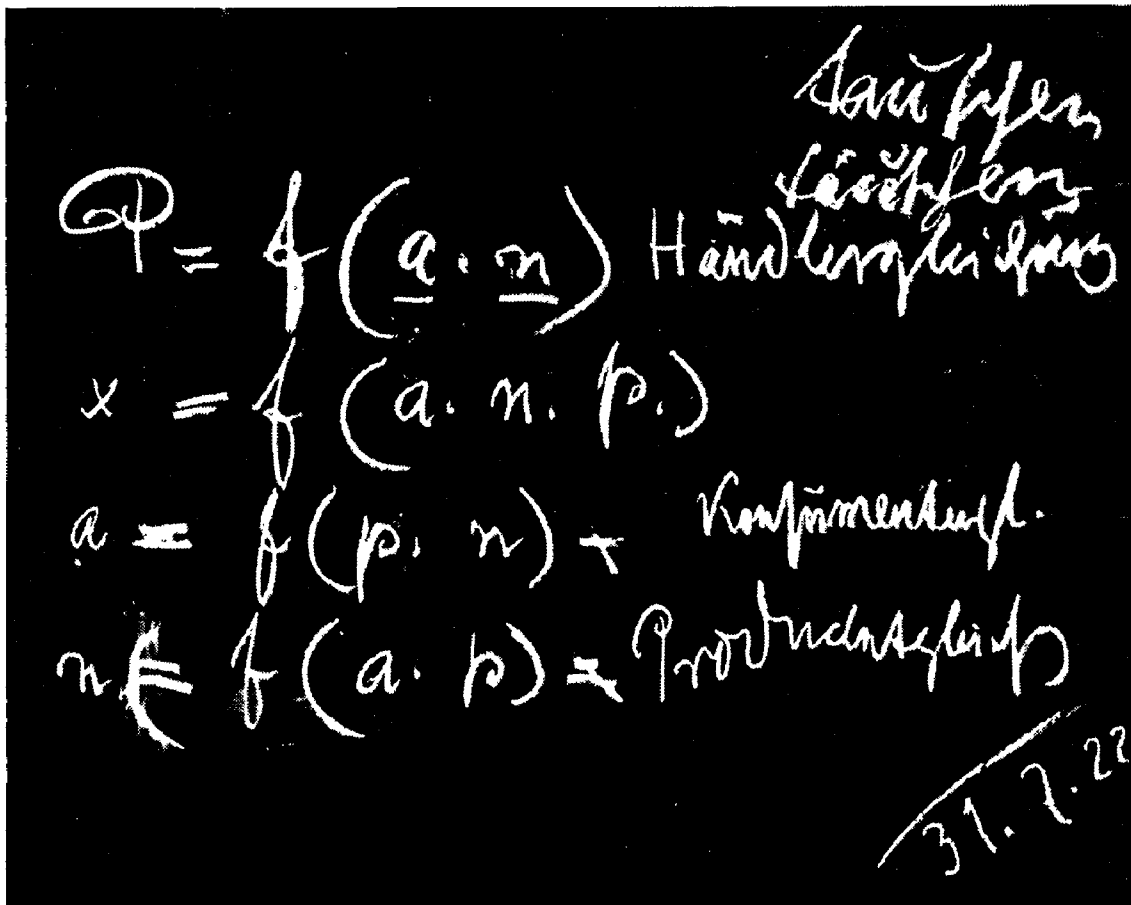 tauschen
täuschen
P = f (a. n) Händlergleichung
x = f (a. n. p.)
a = f (p. n) = Konsumentengl.
n = f (a. p) = Producentengleichg
31.7.22